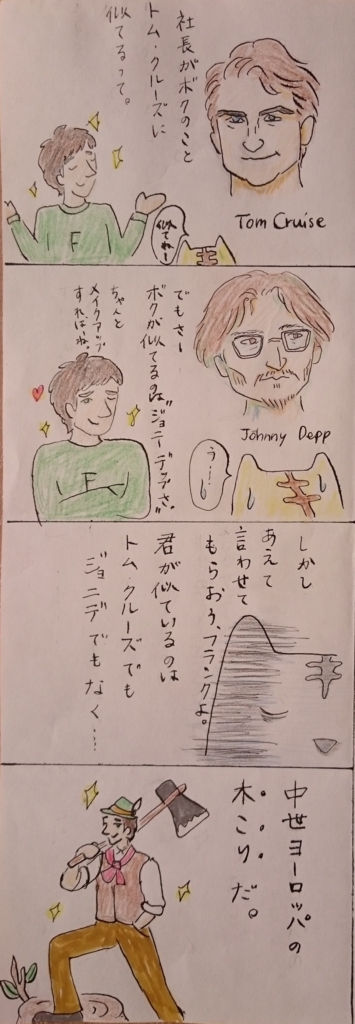 社長がボクのこと
トム・クルーズに
似てるって。
Tom Cruise
F
似てねー
でもさー
ボクが似てるのは"ジョニーデップさ。"
ちゃんと
メイクアップ
すればね。
Johnny Depp
F
う…
しかし
あえて
言わせて
もらおう、フランクよ。
君が似ているのは
トム・クルーズでも
ジョニデでもなく…
中世ヨーロッパの
木こりだ。